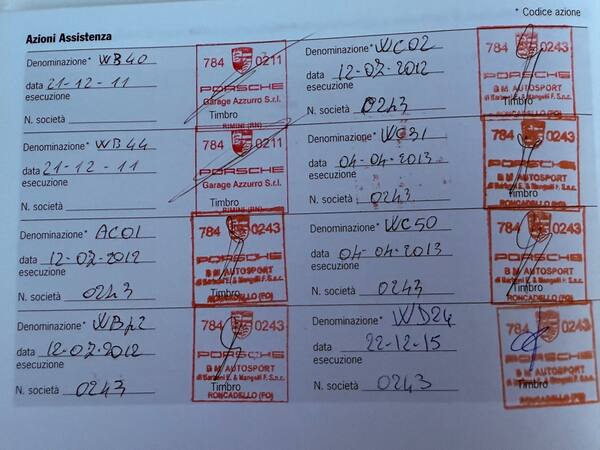 * Codice azione
Azioni Assistenza
Denominazione* WB40
data 21-12-11
esecuzione
N. società
Timbro
784 0211
PORSCHE
Garage Azzurro S.r.l.
RIMINI (RN)
Denominazione* WC02
data 12-07-2012
esecuzione
N. società 0243
Timbro
784 0243
PORSCHE
B M AUTOSPORT
Denominazione* WB44
data 21-12-11
esecuzione
N. società
Timbro
784 0211
PORSCHE
Garage Azzurro S.r.l.
RIMINI (RN)
Denominazione* WC31
data 04-04-2013
esecuzione
N. società 0243
Timbro
784 0243
PORSCHE
B M AUTOSPORT
RONCADELLO (FO)
Denominazione* AC01
data 12-07-2012
esecuzione
N. società 0243
Timbro
784 0243
PORSCHE
B M AUTOSPORT
RONCADELLO (FO)
Denominazione* WC50
data 04-04-2013
esecuzione
N. società 0243
Timbro
784 0243
PORSCHE
B M AUTOSPORT
RONCADELLO (FO)
Denominazione*
data 12-07-2012
esecuzione
N. società 0243
Timbro
784 0243
PORSCHE
B M AUTOSPORT
RONCADELLO (FO)
Denominazione* WD24
data 22-12-15
esecuzione
N. società 0243
Timbro
784 0243
PORSCHE
B M AUTOSPORT
RONCADELLO (FO)